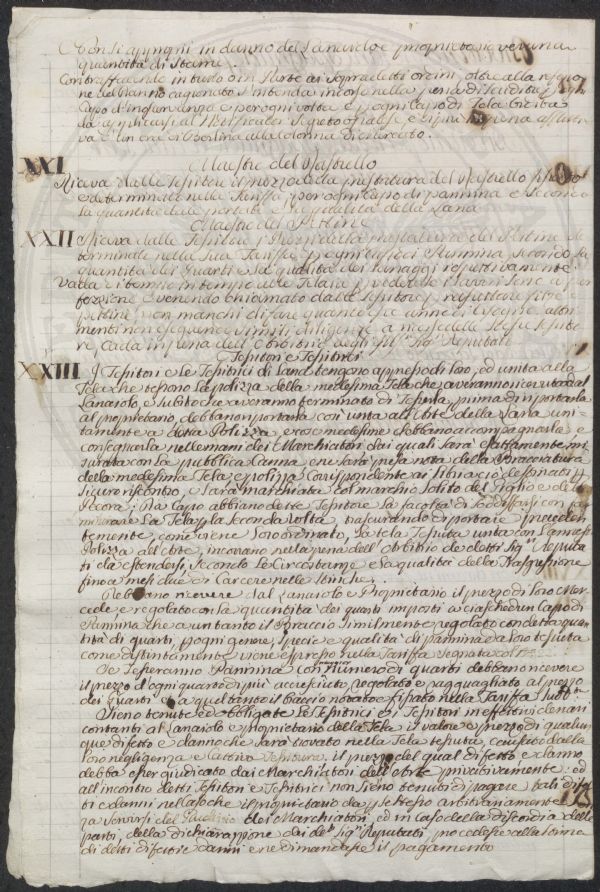 con si aggiugni in danno del Lanaiolo e proprietario veruna
quantità di stame.
Contraffacendo in tutto o in Parte ai sopradetti ordini, oltre alla refezio
ne del danno cagionato s'intenda incorso nella pena di scudi
Capo d'inosservanza e per ogni volta e p ogni capo di Tela
da applicarsi al
va è un ore di Berlina alla colonna di mercato.
XXI
Maestre del
Riceva dalle Tessitore il prezzo della prestatura del
determinato nella Tariffa, per ogni capo di pannina e secondo
la quantità delle portate e la qualità della Lana
Maestre del Pettine
XXII Riceva dalle Tessitore i Prezzi della prestatura del Pettine de
terminate nella sua Tariffa p ogni capo di Pannina, secondo la
quantità dei Quarti e la qualità dei Panaggi respettivamente
Vada di tempo in tempo alle Telaia p vedere se i Lavori sono a per
fezzione e venendo chiamato dalle Tessitore p
pettini non manchi di fare quanto
menti non eseguendo simili diligenze a
re, cada in pena dell' Arbitrio degli Ill. Sig. Deputati
Tessitori e Tessitrici
XXIII I Tessitori e le Tessitrici di Lana tengono appresso di loro, ed unita alla
Tela che tessono la polizza della medesima Tela che averanno ricevuta dal
Lanaiolo, e subito che averanno terminato di Tesserla, prima di riportarla
al proprietario, debbano portarla così unta all'Arte della Lana uni-
tamente a detta Polizza, e esse medesime debbano accompagnarla e
consegnarla nelle mani dei Marchiatori dai quali sarà esattamente mi
surata con la pubblica Canna, e ne sarà presa nota della Bracciatura
della medesima Tela e polizza corrispondente ai
sicuro riscontro, e sarà marchiata col marchio solito del Giglio e della
Pecora: Da Capo abbiano dette Tessitore la facoltà di soddisfarsi con far
misurare la Tela p la seconda volta, trascurando di portare preceden
temente, come viene loro ordinato, la tela Tessuta unta con la
Polizza all'Arte, incorrano nella pena dell' Arbitrio de detti Sig. Deputa
ti da estendersi, secondo le Circostanze e la qualità della Trasgressione
fino a mesi due di Carcere nelle Stinche.
Debbano ricevere dal Lanaiolo e Proprietario il prezzo di loro Mer
cede e regolato con la quantità dei quarti imposti a ciaschedun Capo di
Pannina che a un tanto il Braccio similmente regolato con detta quan
tità di quarti, p ogni genere, specie e qualità di pannina da loro tessuta
come distintamente viene espresso nella Tariffa segnata
Se tesseranno Pannina con maggior numero di quarti debbano ricevere
il prezzo d'ogni quarto di più accresciuto, regolato e ragguagliato al prezzo
dei Quarti e a quel tanto il braccio notato e fissato nella Tariffa sudd.
Sieno tenute ed obbligate le Tessitrici e i Tessitori in effettivi denari
contanti al Lanaiolo e Proprietario della Tela il valore e prezzo di qualun
que difetto e danno che sarà trovato nella Tela tessuta, causato dalla
loro negligenza e cattiva Tessitura: il prezzo del qual difetto e danno
debba esser giudicato dai Marchiatori dell'Arte privativamente: ed
all' incontro detti Tessitori e Tessitrici non sieno tenuti di pagare tali difet
ti e danni nel caso che il proprietario da p se stesso arbitrariamente
za servirsi del Giudizio dei Marchiatori, ed in caso della discordia delle
parti, della dichiarazione dei d. Sig. Deputati, procedesse alla stima
di detti difetti e danni e ne dimandasse il pagamento